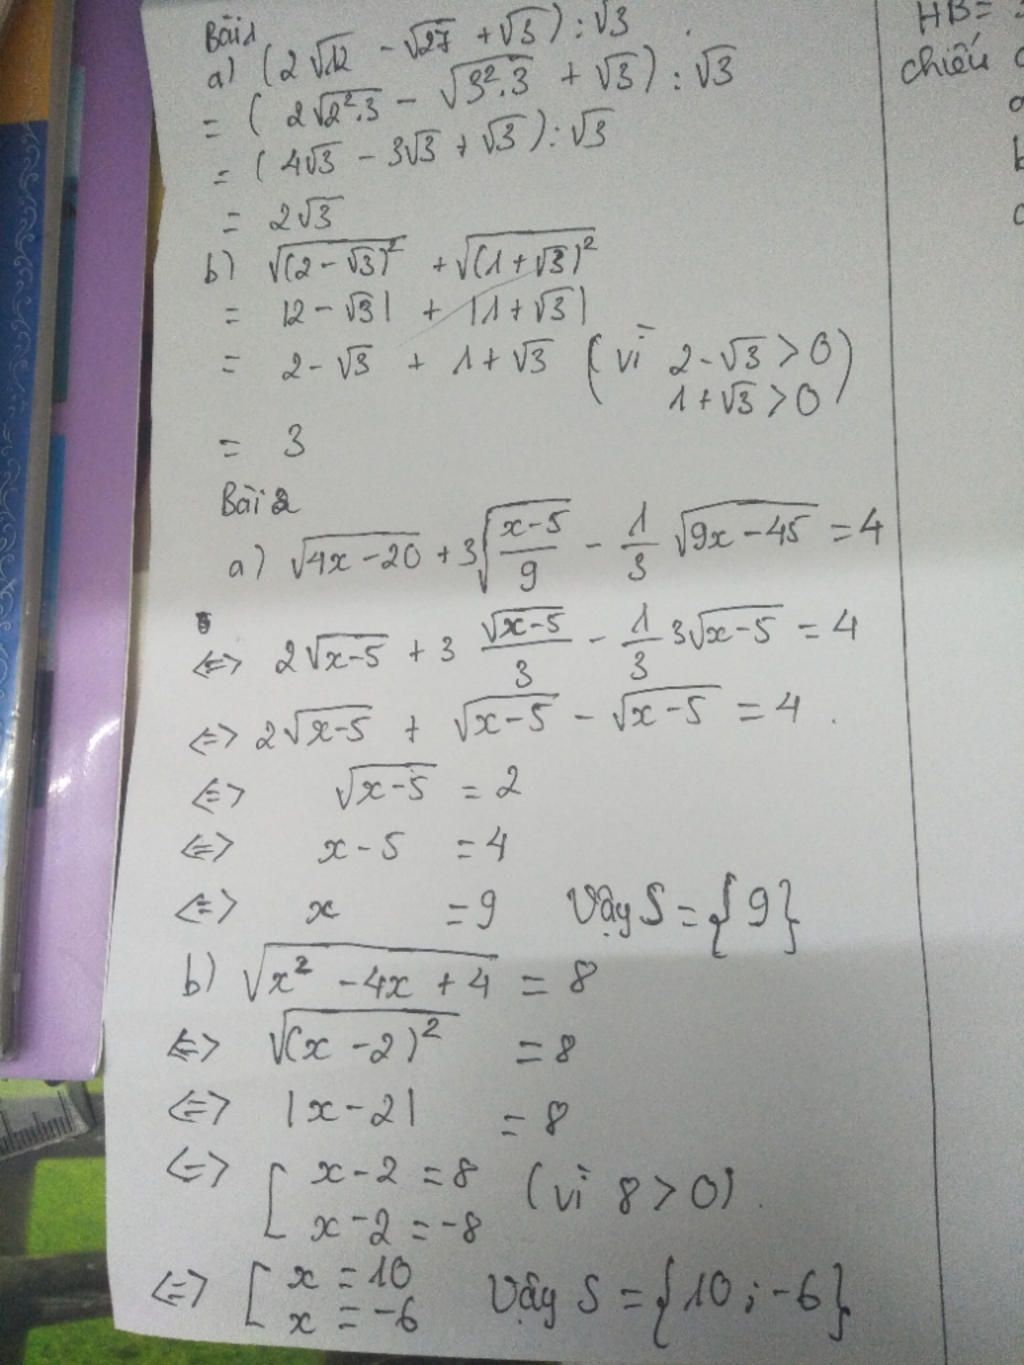 Bài 1
a) (2√12 - √27 + √3) : √3
= (2√2².3 - √3².3 + √3) : √3
= (4√3 - 3√3 + √3) : √3
= 2√3
b) √(2-√3)² + √(1+√3)²
= |2-√3| + |1+√3|
= 2-√3 + 1+√3 (vì 2-√3 > 0
1+√3 > 0)
= 3
Bài 2
a) √4x-20 + 3√x-5/9 - 1/3 √9x-45 = 4
<=> 2√x-5 + 3 √x-5/3 - 1/3 3√x-5 = 4
<=> 2√x-5 + √x-5 - √x-5 = 4.
<=> √x-5 = 2
<=> x-5 = 4
<=> x = 9 Vậy S = {9}
b) √x² - 4x + 4 = 8
<=> √(x-2)² = 8
<=> |x-2| = 8
<=> [ x-2 = 8 (vì 8 > 0).
x-2 = -8
<=> [ x = 10 Vậy S = {10; -6}
x = -6
HB =
chiếu